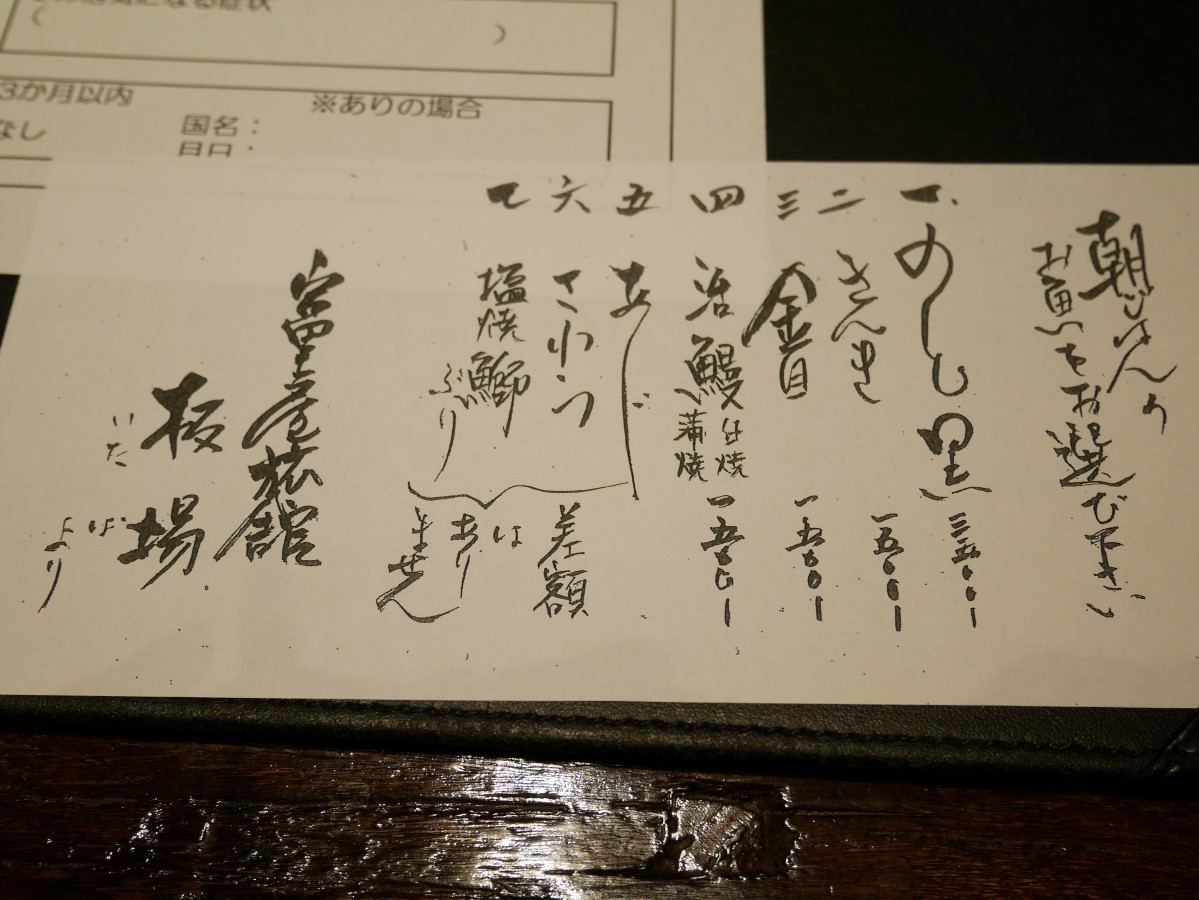 お気になる症状
( )
3か月以内
※ありの場合
なし
国名：
朝ごはんの
お魚をお選び下さい
一、のしと黒 三五〇〇ー
二 きんき 一五〇〇ー
三 金目 一五〇〇ー
四 活鰻 白焼 蒲焼 一五〇〇ー
五 あじ
六 さわら
七 塩焼鰤 ぶり
差額
は
あり
ません
富里屋旅館
板場
いたば
より